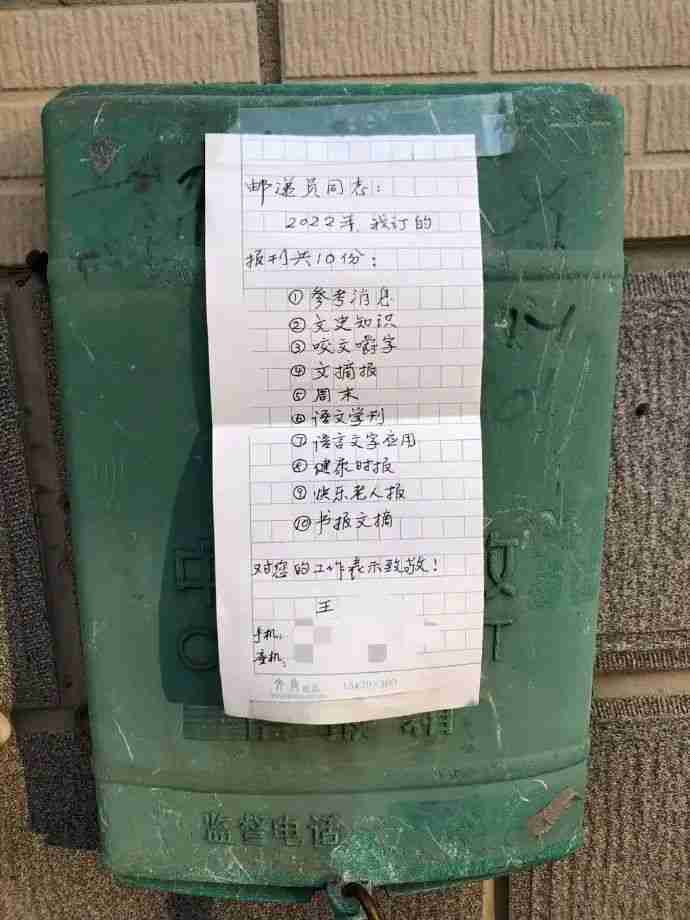 邮递员同志：
2022年，我订的
报刊共10份：
①参考消息
②文史知识
③咬文嚼字
④文摘报
⑤周末
⑥语文学刊
⑦语言文字应用
⑧健康时报
⑨快乐老人报
⑩书报文摘
对您的工作表示致敬！
王
手机：
座机：
15×20=300
中
政
监督电话